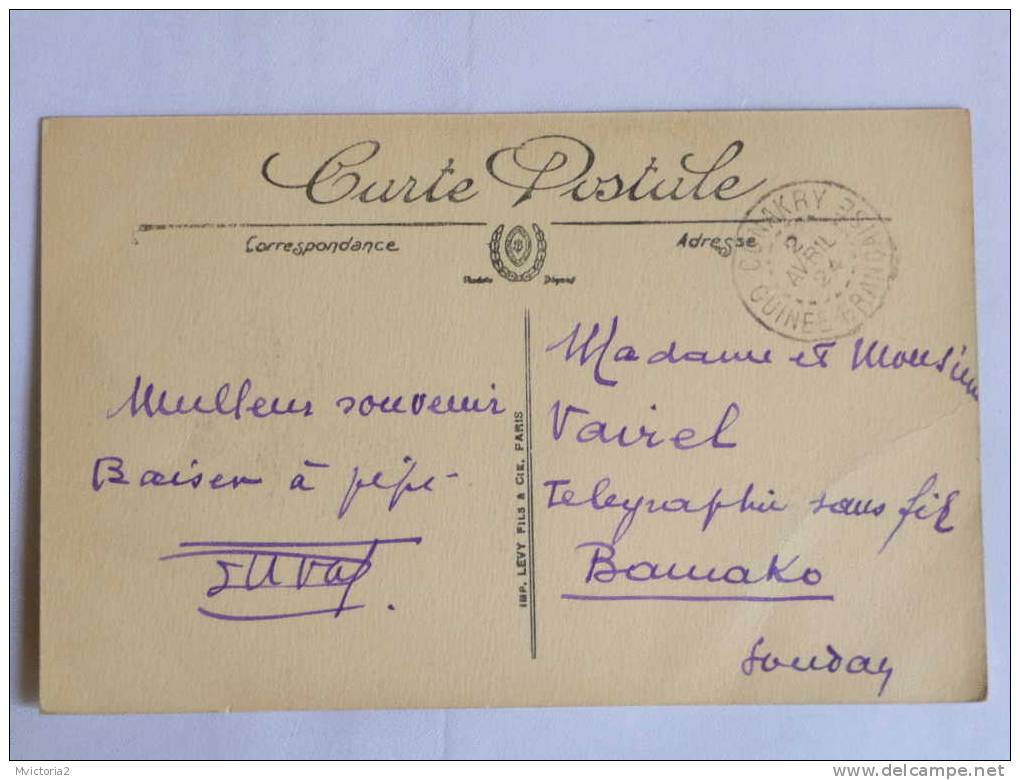 Carte Postale
Correspondance
Adresse
CONAKRY
2
AVRIL
24
GUINÉE FRANÇAISE
Modèle Déposé
Meilleur souvenir
Baiser à pépé
IMP. LEVY FILS & CIE, PARIS
Madame et Monsieur
Vairel
Telegraphie sans fil
Bamako
Soudan
Mvictoria2
delcampe.net